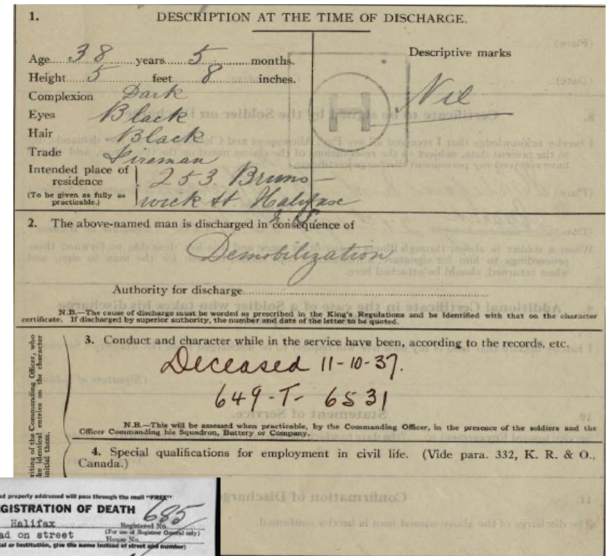 1. DESCRIPTION AT THE TIME OF DISCHARGE.
Age 38 years 5 months. Descriptive marks
Height 5 feet 8 inches. Nil
Complexion Dark
Eyes Black
Hair Black
Trade Fireman
Intended place of residence 253 Bruns-
(To be given as fully as practicable.) wick St Halifax
N.S.
H
2. The above-named man is discharged in consequence of
Demobilization
Authority for discharge
N.B.—The cause of discharge must be worded as prescribed in the King's Regulations and be identified with that on the character
certificate. If discharged by superior authority, the number and date of the letter to be quoted.
3. Conduct and character while in the service have been, according to the records, etc.
Deceased 11-10-37.
649-T-6531
N.B.—This will be assessed when practicable, by the Commanding Officer, in the presence of the soldiers and the
Officer Commanding his Squadron, Battery or Company.
4. Special qualifications for employment in civil life. (Vide para. 332, K. R. & O.,
Canada.)
of the Commanding Officer, who
identical entries on the character
initial them.
and properly addressed will pass through the mail "FREE"
GISTRATION OF DEATH 685
Halifax Registered No.
(For use of Registrar General only)
ad on street House No.
al or Institution, give the name instead of street and number)